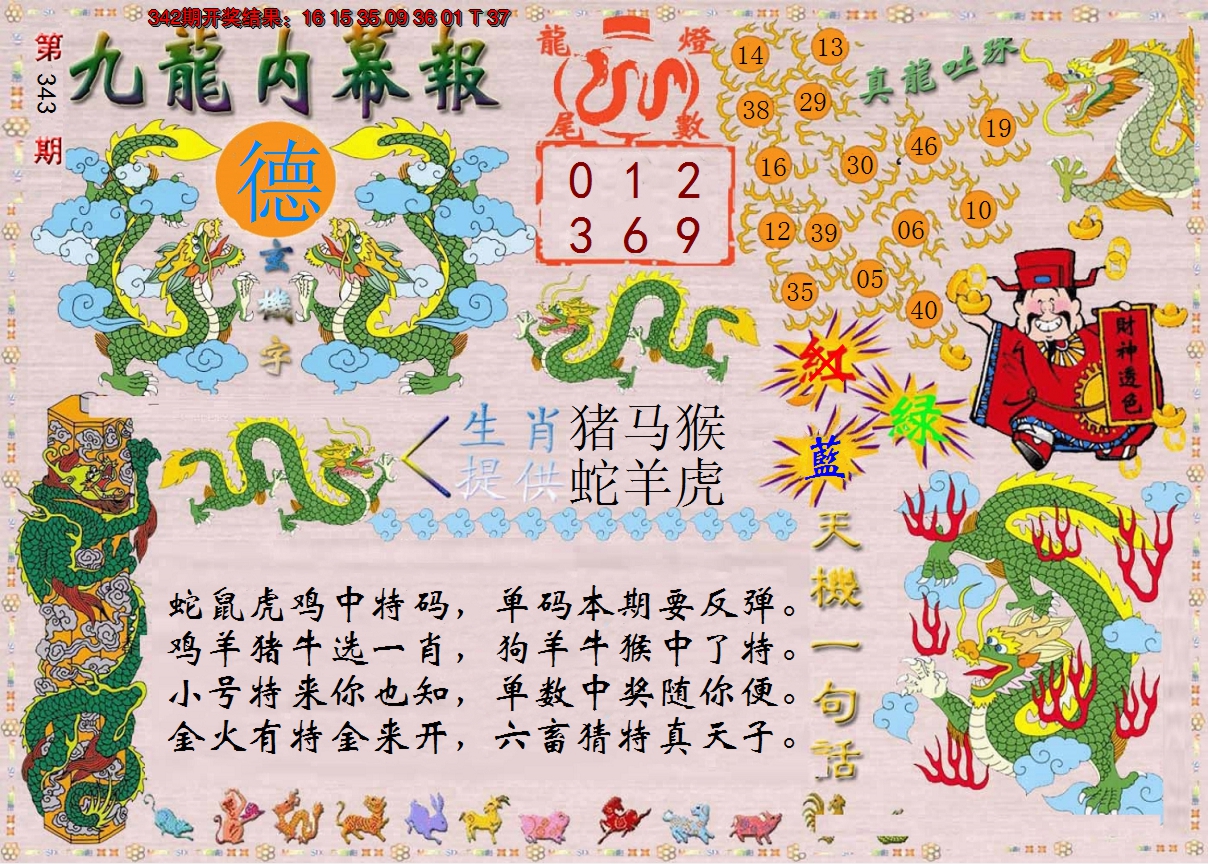 342期开奖结果：16 15 35 09 36 01 T 37
第343期
九龍内幕報
德
玄機字
龍燈
尾數
0 1 2
3 6 9
真龍吐珠
14 13
38 29
16 30 46 19
12 39 06 10
35 05 40
財神透色
紅
綠
藍
生肖
提供
猪马猴
蛇羊虎
天機一句話
蛇鼠虎鸡中特码，单码本期要反弹。
鸡羊猪牛选一肖，狗羊牛猴中了特。
小号特来你也知，单数中奖随你便。
金火有特金来开，六畜猜特真天子。